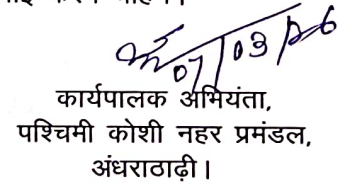 07/03/26
कार्यपालक अभियंता,
पश्चिमी कोशी नहर प्रमंडल,
अंधराठाढ़ी।